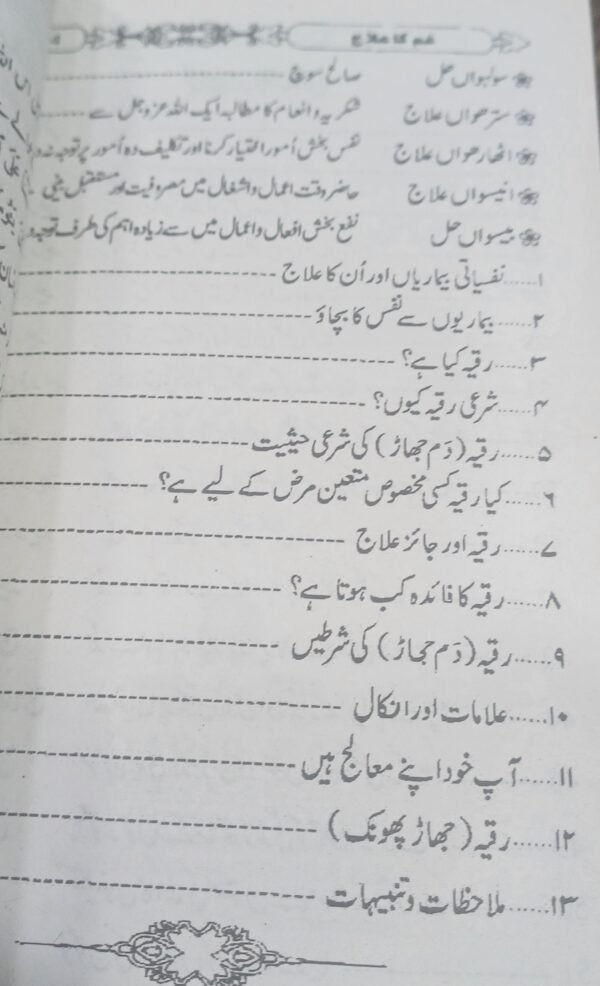 غم کا علاج
سولہواں حل صالح سوچ
سترھواں علاج شکریہ و انعام کا مطالبہ ایک اللہ عزوجل سے
اٹھارھواں علاج نفس بخش اُمور اختیار کرنا اور تکلیف دہ اُمور پر توجہ نہ دو
انیسواں علاج حاضر وقت اعمال و اشغال میں مصروفیت اور مستقبل بینی
بیسواں حل نفع بخش افعال و اعمال میں سے زیادہ اہم کی طرف توجہ دو
۱......نفسیاتی بیماریاں اور اُن کا علاج
۲......بیماریوں سے نفس کا بچاؤ
۳......رقیہ کیا ہے؟
۴......شرعی رقیہ کیوں؟
۵......رقیہ (دَم جھاڑ) کی شرعی حیثیت
۶......کیا رقیہ کسی مخصوص متعین مرض کے لیے ہے؟
۷......رقیہ اور جائز علاج
۸......رقیہ کا فائدہ کب ہوتا ہے؟
۹......رقیہ (دَم جھاڑ) کی شرطیں
۱۰......علامات اور انکال
۱۱......آپ خود اپنے معالج ہیں
۱۲......رقیہ (جھاڑ پھونک)
۱۳......ملاحظات و تنبیہات